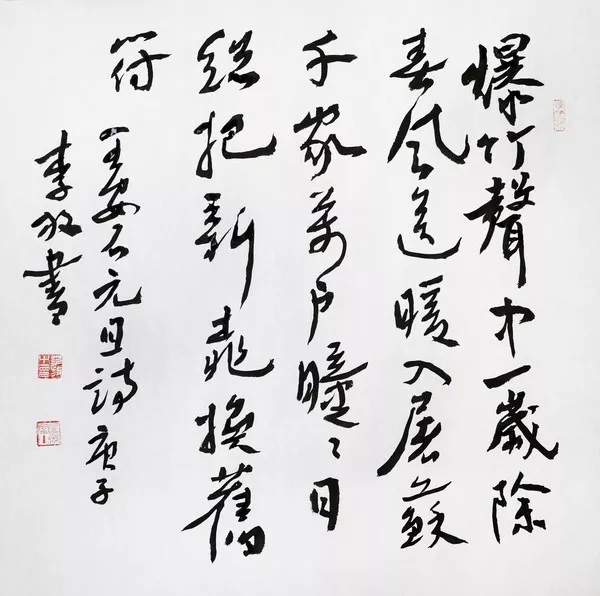 爆竹聲中一歲除
春風送暖入屠蘇
千家萬戶曈〻日
總把新桃換舊
符
王安石元旦詩 庚子
李 書